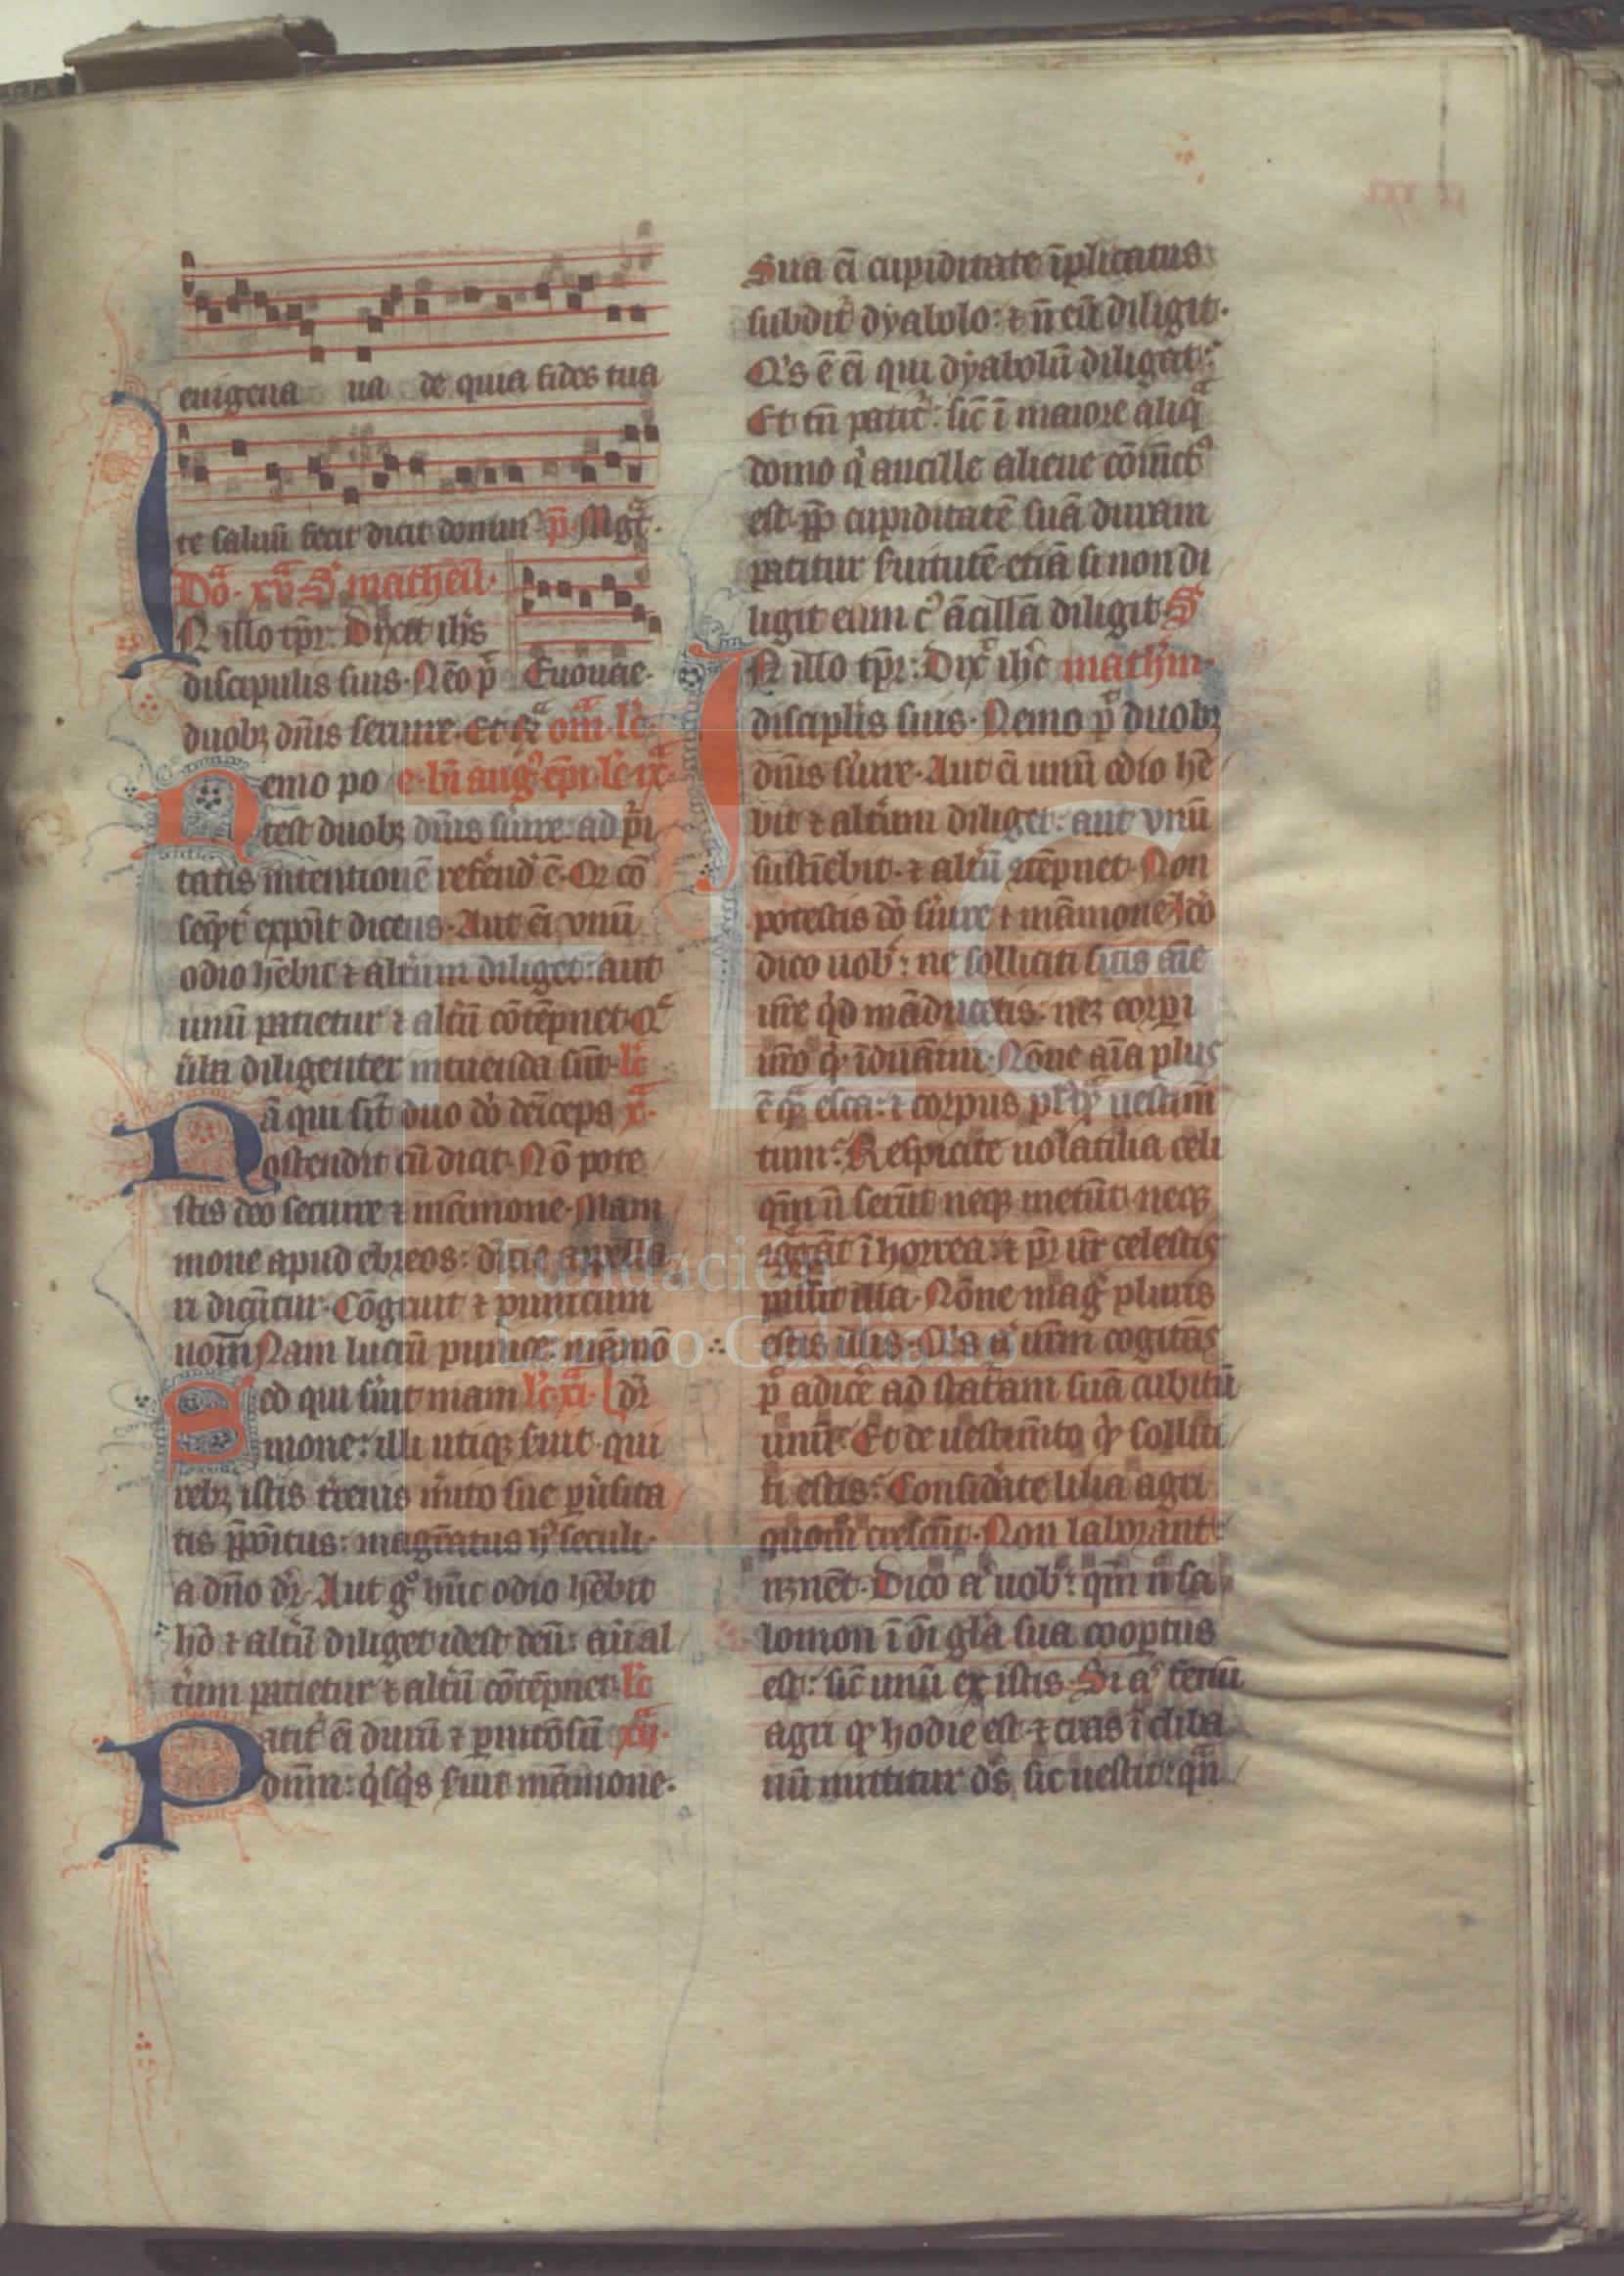 enigena ua de quia fides tua
te saluū fecit dicit domin⁹ p̄. Mgͣt.
Dōͣ. xvͣ. S. matheū.
IN illo tp̄r. Dixit ih̄s
discipulis suis. Nēo p̄ Euouae.
duob⁊ dn̄is seruire. Et rͣ om̄ͣ. lc̄.
Nemo po e. bt̄i augⁱ. ep̄i. lc̄ ixͣ.
test duob⁊ dn̄is s̄uire: ad p̄i
tatis intentionē referend̄ ē. Qr̄ cō
seq̄nt̄ exponit dicens. Aut ei vnū
odio hēbit ⁊ alterum diliget: aut
unū patietur ⁊ altū cōtēpnet. Qͤ
ūba diligenter intuenda sūt. lc̄
Nā qui sīt duo dn̄i deīceps xͣ.
ostendit cū dicat. Nō pote
stis deo seruire ⁊ māmone. Mam
mone apud ebreos: diuicie appella
ri dicūtur. Cōgruit ⁊ punicum
nom̄. Nam lucrū punice: māmō
Sed qui s̄uit mam lc̄. xiͣ. dr̄
mone: illi utiq⁊ s̄uit. qui
reb⁊ istis t̄renis m̄ito sue p̄uersita
tis p̄positus: magr̄atus h⁹ seculi.
a dn̄o dr̄. Aut g° hūc odio hēbit
hō ⁊ altū diliget idest deū: aut al
t̄um patietur ⁊ altū cōtēpnet. lc̄
Patit̄ ei durū ⁊ p̄nitiosū xijͣ.
dn̄m: qⁱsqⁱs s̄uit māmone.
Sua ei cupiditate īplicatus
subdit̄ dyabolo: ⁊ n̄ eū diligit.
Qⁱs ē ei qui dyabolū diligat.
Et tn̄ patit̄: sic̄ ī maiore aliqͣ
domo qⁱ ancille aliene cōiūct⁹
est. p̄p̄ cupiditatē suā duram
patitur s̄uitutē. etiā si non di
ligit eum c⁹ ācillā diligit. S
IN illo tp̄r: Dix̄ ih̄c math̄m.
discipl̄is suis. Nemo p̄t duob⁊
dn̄is s̄uire. Aut ei unū odio hē
bit ⁊ alterum diliget: aut vnū
sustīebit. ⁊ altū ↄtēpnet. Non
potestis dō s̄uire ⁊ māmone. Idō
dico uob̄: ne solliciti sitis aīe
ur̄e qⁱd māducetis: ne⁊ corpi
ur̄o qⁱ īduāmi. Nōne aīa plus
ē qͣ esca: ⁊ corpus pl⁹ qͣ uestim̄
tum: Respicite uolatilia celi
qm̄ n̄ serūt neq⁊ metūt. neq⁊
ↄgͤgāt ī horrea: ⁊ p̄r ur̄ celestis
pascit illa. Nōne maḡ pluris
estis illis. Qⁱs aͣ ur̄m cogitās
p̄t adice̅ ad staturam suā cubitū
unū: Et de uestim̄to qⁱd solliti
ti estis: Considāte lilia agri
quom̄ crescūt. Non laborant
ne⁊ nēt. Dico aͣ uob̄: qm̄ n̄ sa
lomon ī oī gl̄a sua coopertus
est: sic̄ unū ex istis. Si aͣ fenū
agri q̄ hodie est ⁊ cras ī cliba
nū mittitur. dˢ sic uestit: qͣn